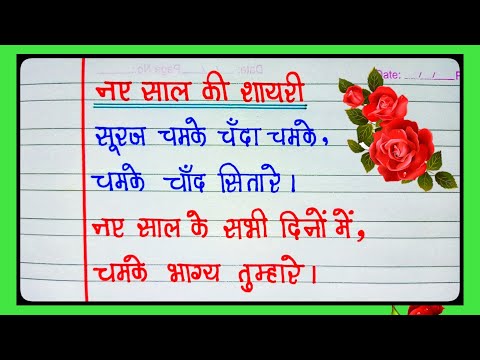 Date: __/__/__ P
नए साल की शायरी
सूरज चमके चँदा चमके,
चमके चाँद सितारे।
नए साल के सभी दिनों में,
चमके भाग्य तुम्हारे।